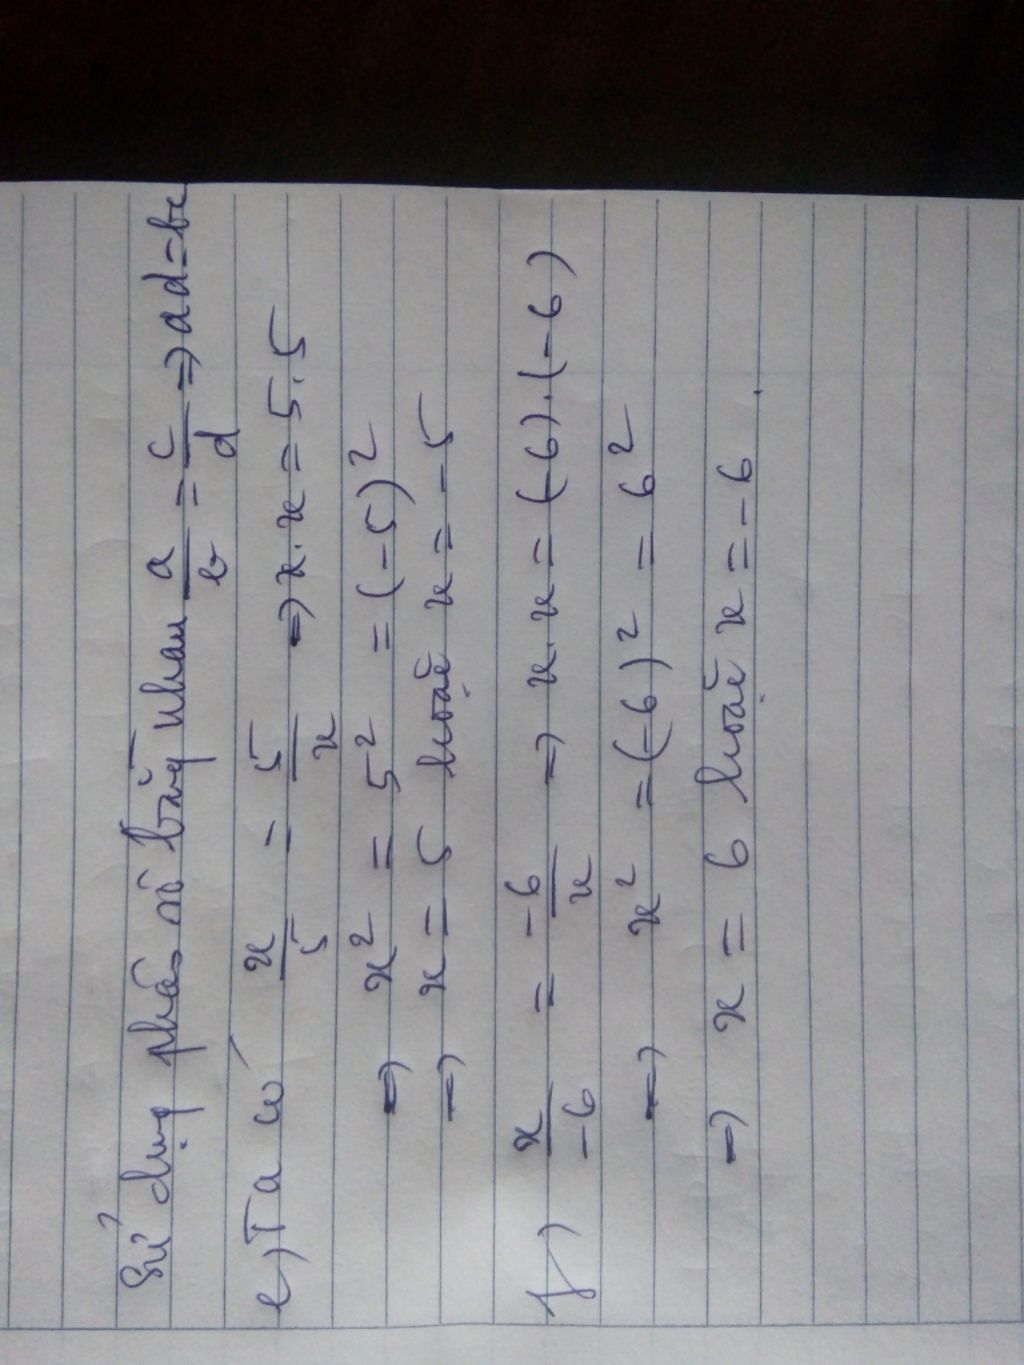 Sử dụng phân số bằng nhau a/b = c/d ⇒ ad = bc
e, Ta có x/5 = 5/x ⇒ x.x = 5.5
⇒ x² = 5² = (-5)²
⇒ x = 5 hoặc x = -5
f) x/-6 = -6/x ⇒ x.x = (-6).(-6)
⇒ x² = (-6)² = 6²
⇒ x = 6 hoặc x = -6.